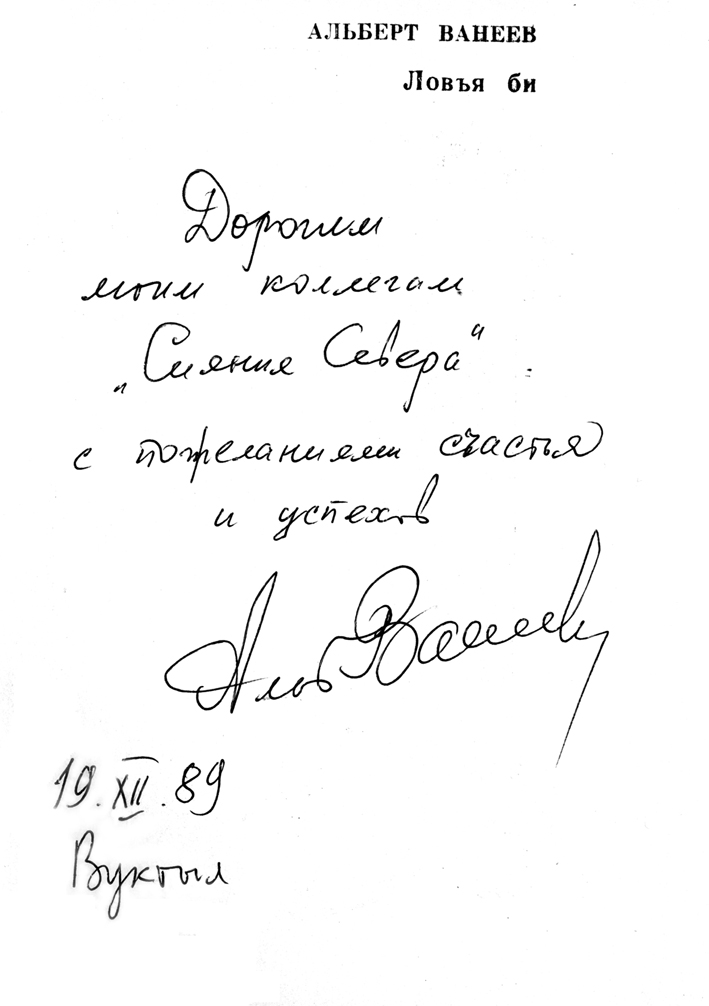 АЛЬБЕРТ ВАНЕЕВ
Ловъя би
Дорогим
моим коллегам
„Сияния Севера“
с пожеланиями счастья
и успехов
Альб Ванеев
19. XII. 89
Вуктыл